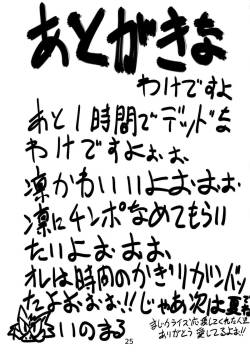 あとがきな
わけですよ
あと1時間でデッドな
わけですよぉぉ
凛かわいいよぉぉぉ
凛にチンポなめてもらい
たいよぉぉぉ
オレは時間のかぎりガンバッ
たよぉぉぉ!!じゃあ次は夏
いのまる
ありがとう愛してるよぉ!!
25